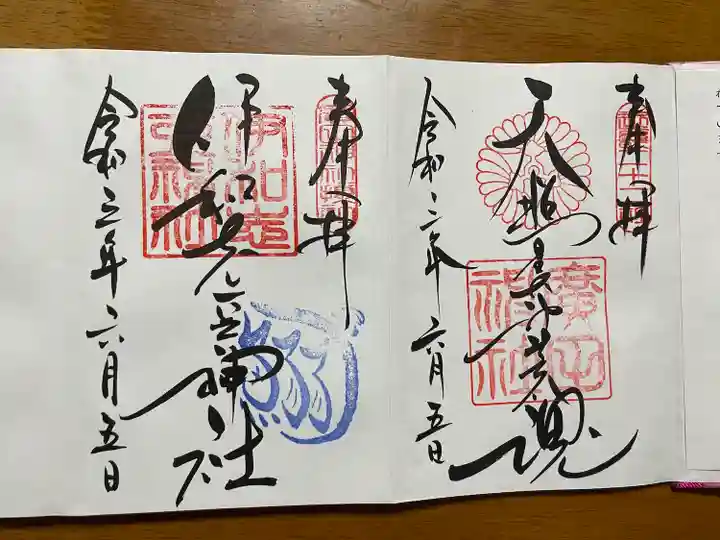 奉拝
天照皇大神荒魂
廣田神社
令和三年六月五日
奉拝
伊和志津神社
伊和志津神社
令和三年六月五日